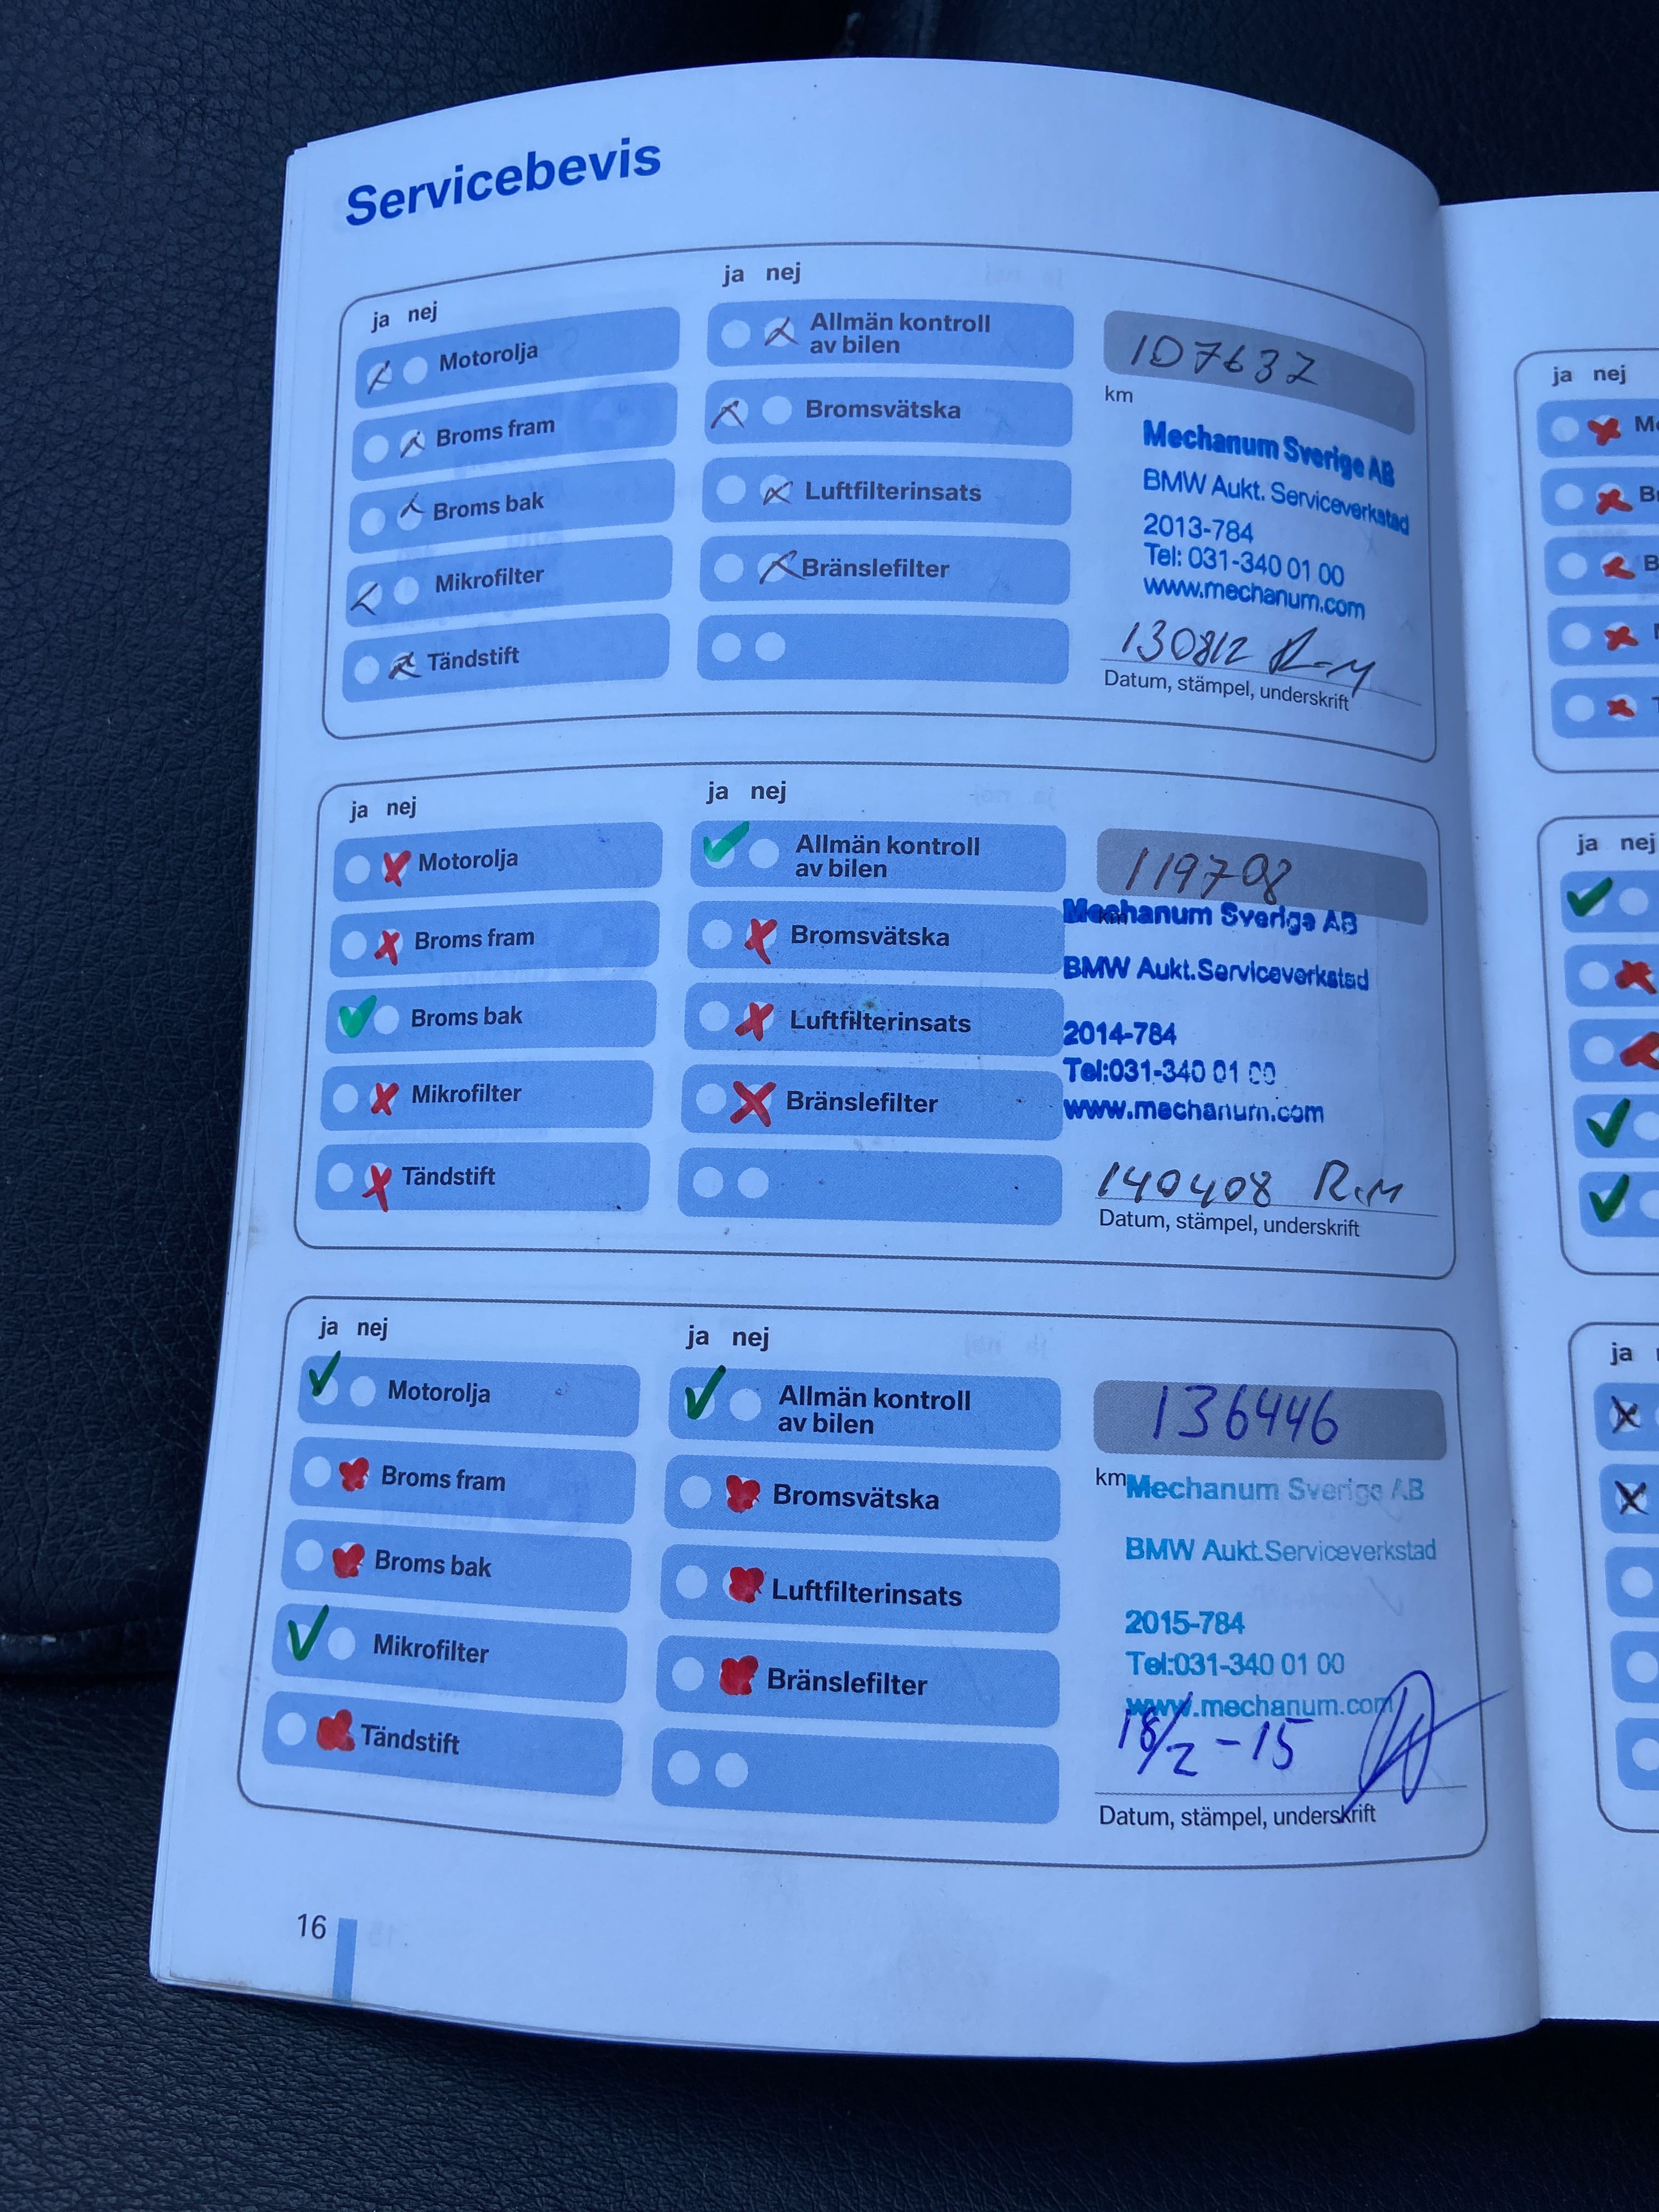 Servicebevis
ja nej
Motorolja
Broms fram
Broms bak
Mikrofilter
Tändstift
ja nej
Allmän kontroll
av bilen
Bromsvätska
Luftfilterinsats
Bränslefilter
107637
km
Mechanum Sverige AB
BMW Aukt. Serviceverkstad
2013-784
Tel: 031-340 01 00
www.mechanum.com
130812 R-M
Datum, stämpel, underskrift
ja nej
Motorolja
Broms fram
Broms bak
Mikrofilter
Tändstift
ja nej
Allmän kontroll
av bilen
Bromsvätska
Luftfilterinsats
Bränslefilter
119708
km
Mechanum Sverige AB
BMW Aukt.Serviceverkstad
2014-784
Tel:031-340 01 00
www.mechanum.com
140408 R.M
Datum, stämpel, underskrift
ja nej
Motorolja
Broms fram
Broms bak
Mikrofilter
Tändstift
ja nej
Allmän kontroll
av bilen
Bromsvätska
Luftfilterinsats
Bränslefilter
136446
km
Mechanum Sverige AB
BMW Aukt.Serviceverkstad
2015-784
Tel:031-340 01 00
www.mechanum.com
18/2-15
Datum, stämpel, underskrift
16
ja nej
ja nej
ja